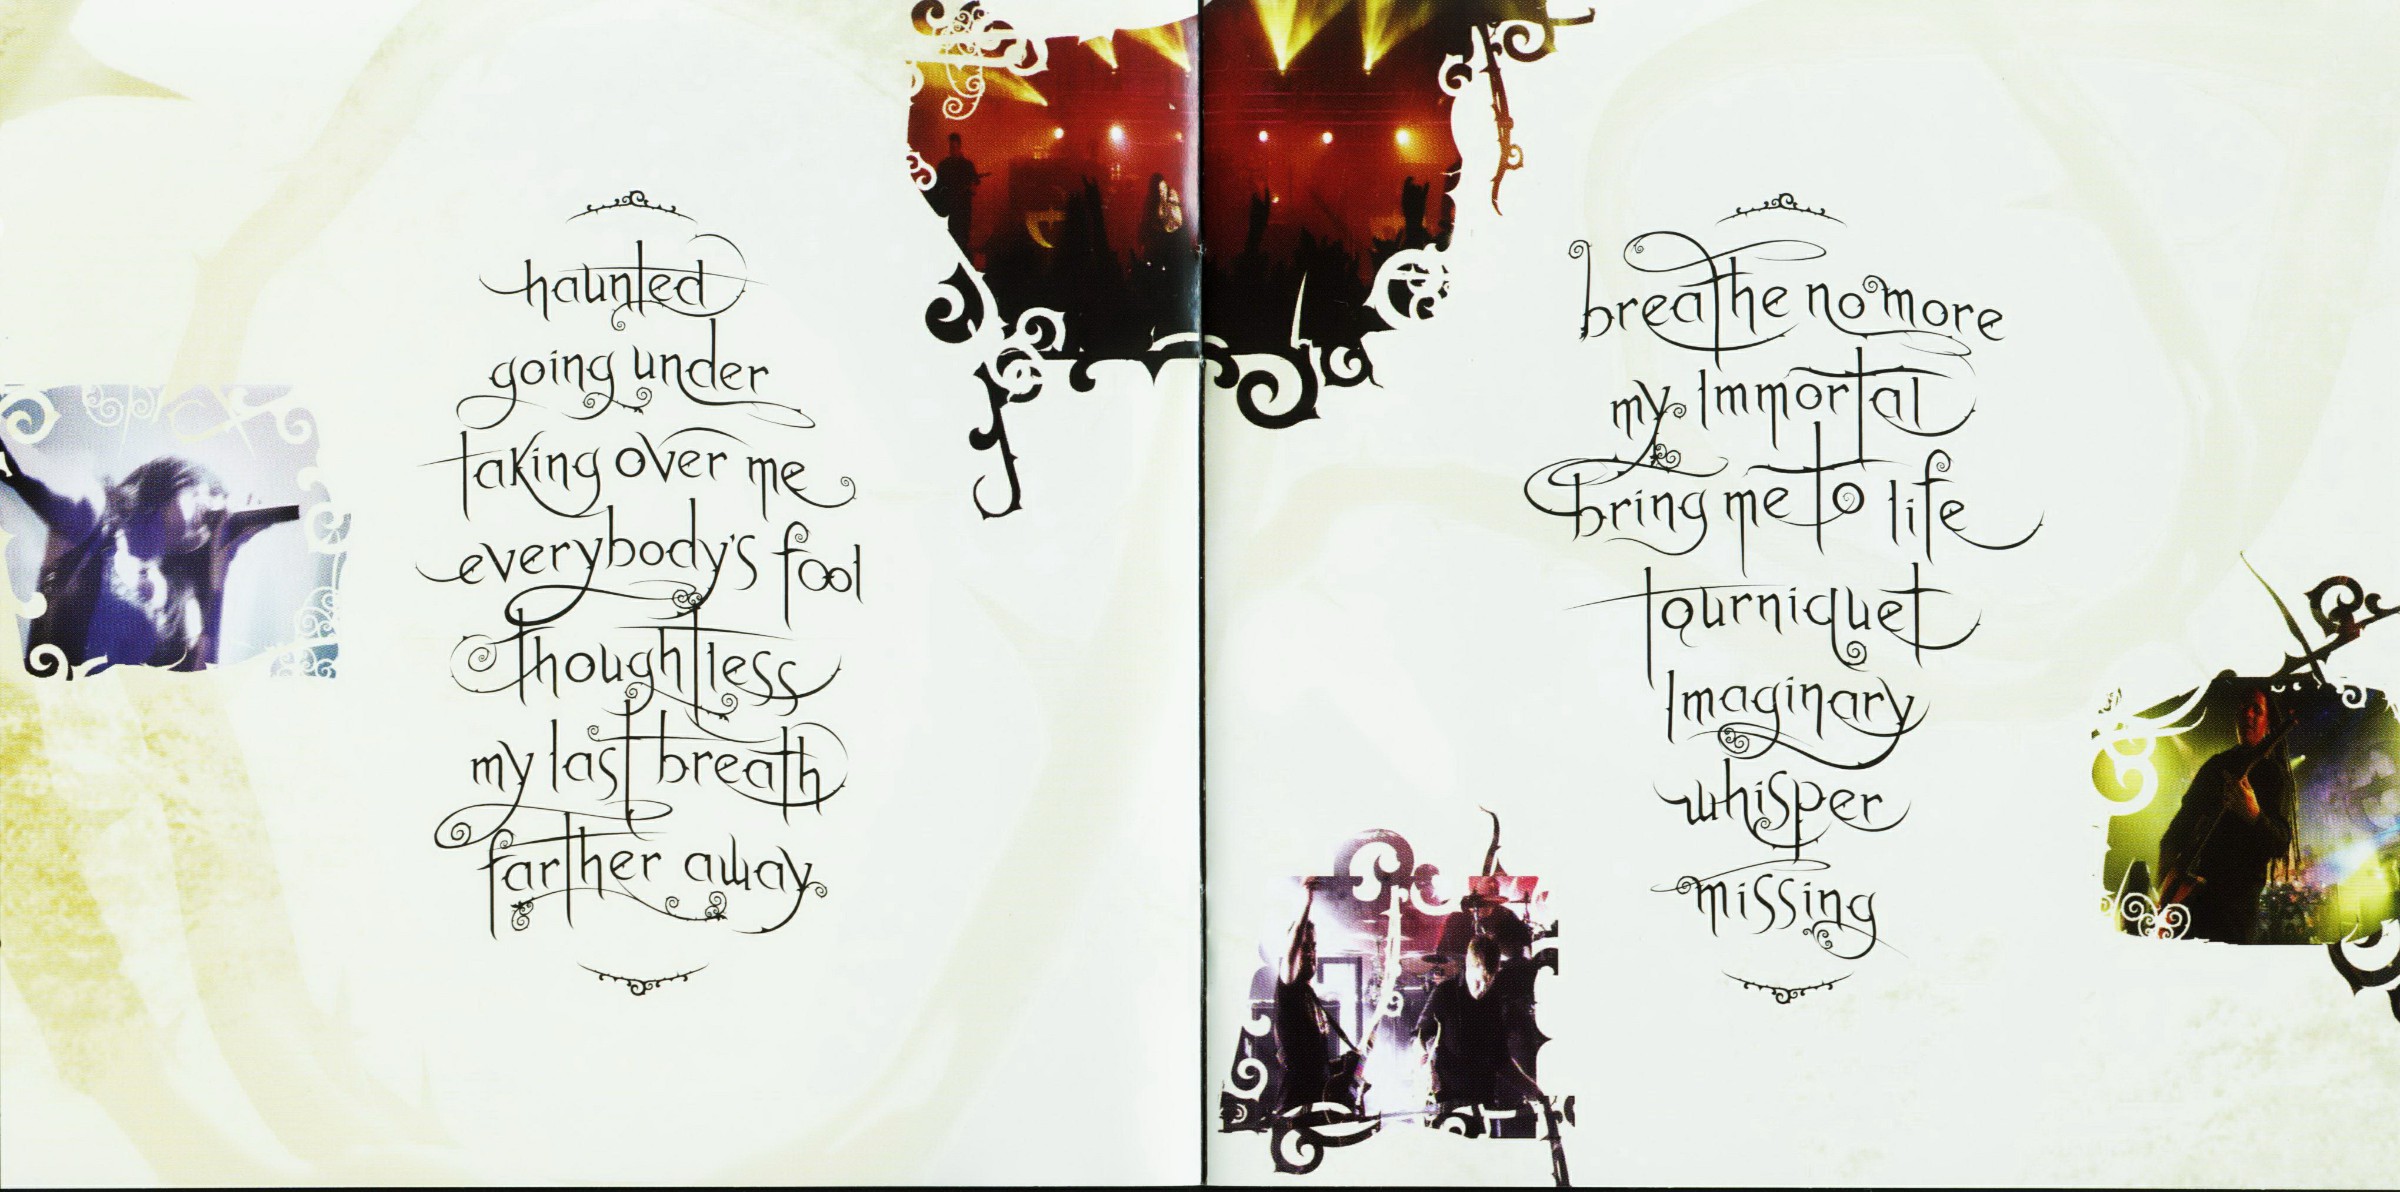 haunted
going under
taking over me
everybody's fool
thoughtless
my last breath
farther away
breathe no more
my Immortal
bring me to life
tourniquet
Imaginary
whisper
missing